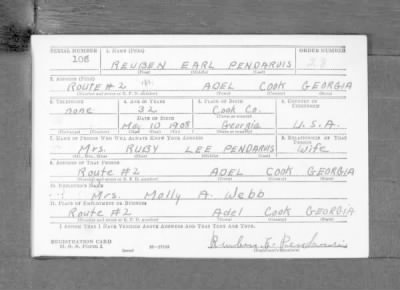 SERIAL NUMBER 1. NAME (Print) ORDER NUMBER
108 REUBEN EARL PENDARVIS
(First) (Middle) (Last)
2. ADDRESS (Print)
ROUTE #2 ADEL COOK GEORGIA
(Town) (County) (State)
3. TELEPHONE 4. AGE IN YEARS 5. PLACE OF BIRTH 6. COUNTRY OF CITIZENSHIP
none 32 Cook Co.
DATE OF BIRTH
May 10 1908 Georgia U.S.A.
7. NAME OF PERSON WHO WILL ALWAYS KNOW YOUR ADDRESS 8. RELATIONSHIP OF THAT PERSON
Mrs. RUBY LEE PENDARVIS Wife
(Mr., Mrs., Miss) (First) (Middle) (Last)
9. ADDRESS OF THAT PERSON
Route #2 ADEL COOK GEORGIA
(Town) (County) (State)
10. EMPLOYER'S NAME
Mrs. Molly A. Webb
11. PLACE OF EMPLOYMENT OR BUSINESS
Route #2 Adel COOK GEORGIA
(Town) (County) (State)
I AFFIRM THAT I HAVE VERIFIED ABOVE ANSWERS AND THAT THEY ARE TRUE.
REGISTRATION CARD
D. S. S. Form 1
Reuben E. Pendarvis